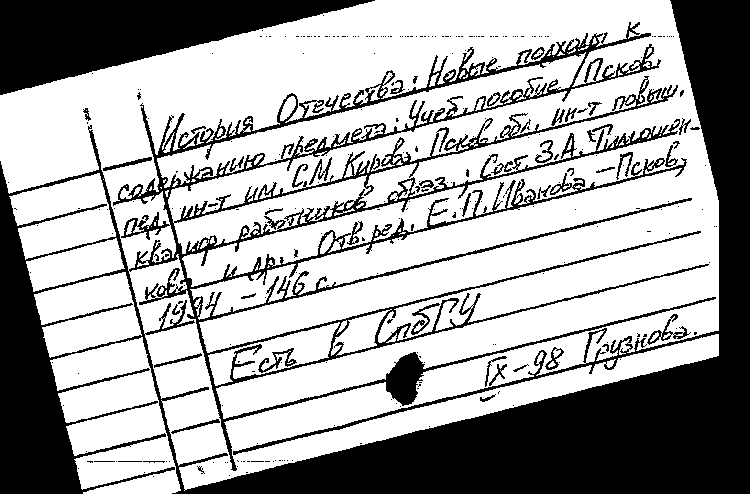 История Отечества: Новые подходы к
содержанию предмета: Учеб. пособие / Псков.
пед. ин-т им. С.М. Кирова; Псков. обл. ин-т повыш.
квалиф. работников образ.; Сост. З.А. Тимошен-
кова и др.; Отв. ред. Е.П. Иванова. – Псков,
1994. – 146 с.
Есть в СпбГУ
IX-98 Грузнова.